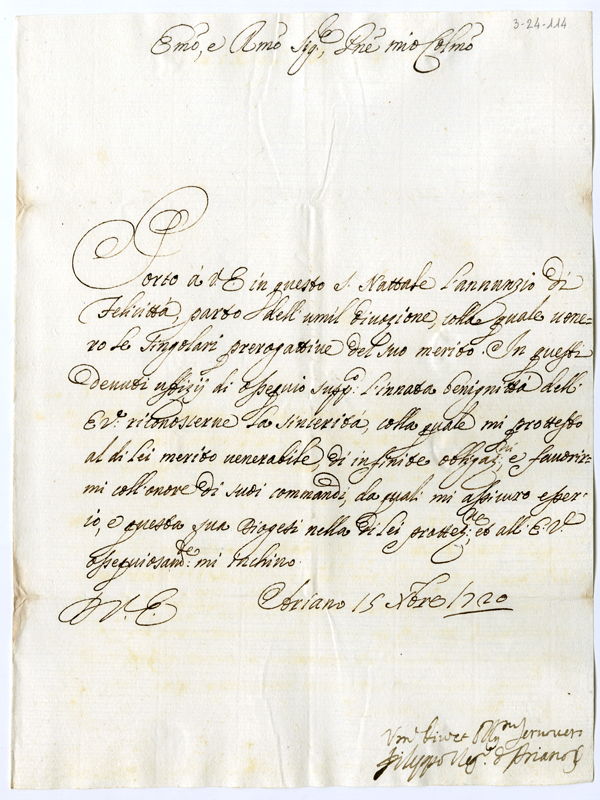 3-24-114
Emo, e Rmo Sigre, Pne mio Colmo
Porto à V E in questo S. Nattale l'annunzio di
Felicittà, parto dell'umil divozione, colla quale vene-
ro le singolari prerogattive del suo merito. In questi
devuti uffizij di ossequio suppco l'innata benignittà dell'
E.V. riconoscerne la sincerità, colla quale mi prottesto
al di lei merito venerabile, di infinite obligazni, e favorir-
mi coll'onore di suoi commandi, da quali mi assicuro esser-
io, e questa sua Diogesi nella di lei prottezne, et all'E.V.
ossequiosamte mi inchino
D V. E. Ariano 15 Xbre 1720
Vmo Divo Obbmo Servitore
Filippo Vescº d'Ariano